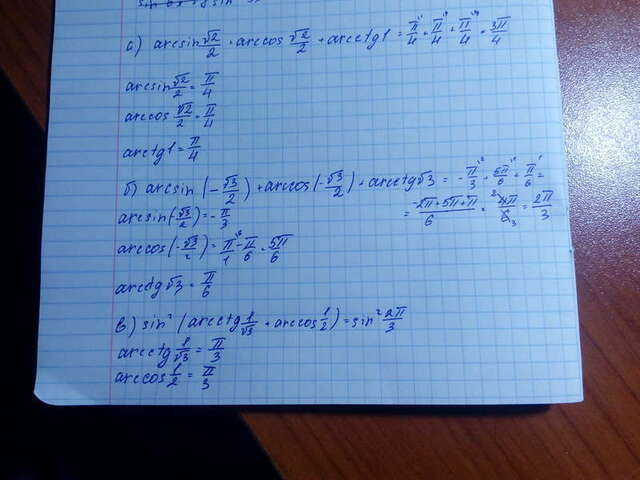 а) arcsin √2/2 + arccos √2/2 + arcctg 1 = π/4 + π/4 + π/4 = 3π/4
arcsin √2/2 = π/4
arccos √2/2 = π/4
arcctg 1 = π/4
б) arcsin (-√3/2) + arccos (-√3/2) + arcctg √3 = -π/3 + 5π/6 + π/6 =
= (-2π+5π+π)/6 = 4π/6 = 2π/3
arcsin (-√3/2) = -π/3
arccos (-√3/2) = π/1 - π/6 = 5π/6
arcctg √3 = π/6
в) sin² (arcctg 1/√3 + arccos 1/2) = sin² 2π/3
arcctg 1/√3 = π/3
arccos 1/2 = π/3